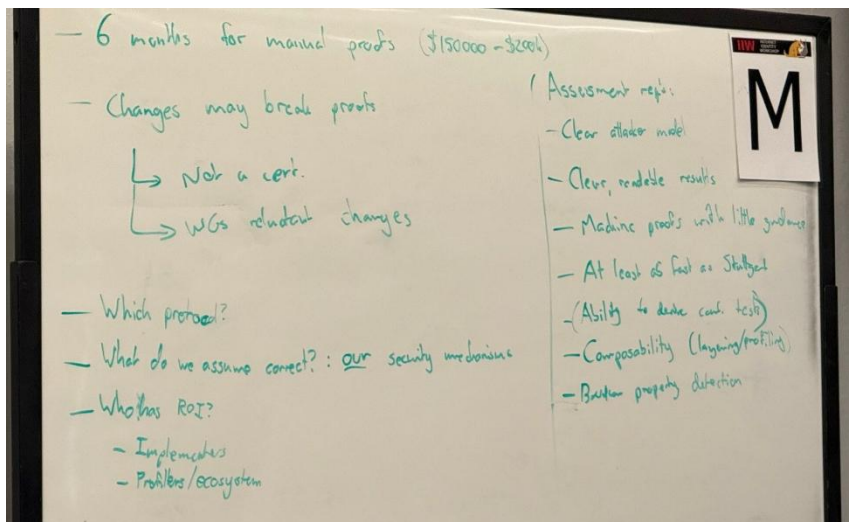 - 6 months for manual proofs ($150000 - $200k)
- Changes may break proofs
↳ Not a cert.
↳ WGs reluctant changes
- Which protocol?
- What do we assume correct? : our security mechanisms
- Who has ROI?
- Implementers
- Profilers/ecosystem
Assessment reqts:
- Clear attacker model
- Clear, readable results
- Machine proofs with little guidance
- At least as fast as Stuttgart
- (Ability to derive conf. tests)
- Composability (layering/profiling)
- Broken property detection
IIW INTERNET IDENTITY WORKSHOP
M